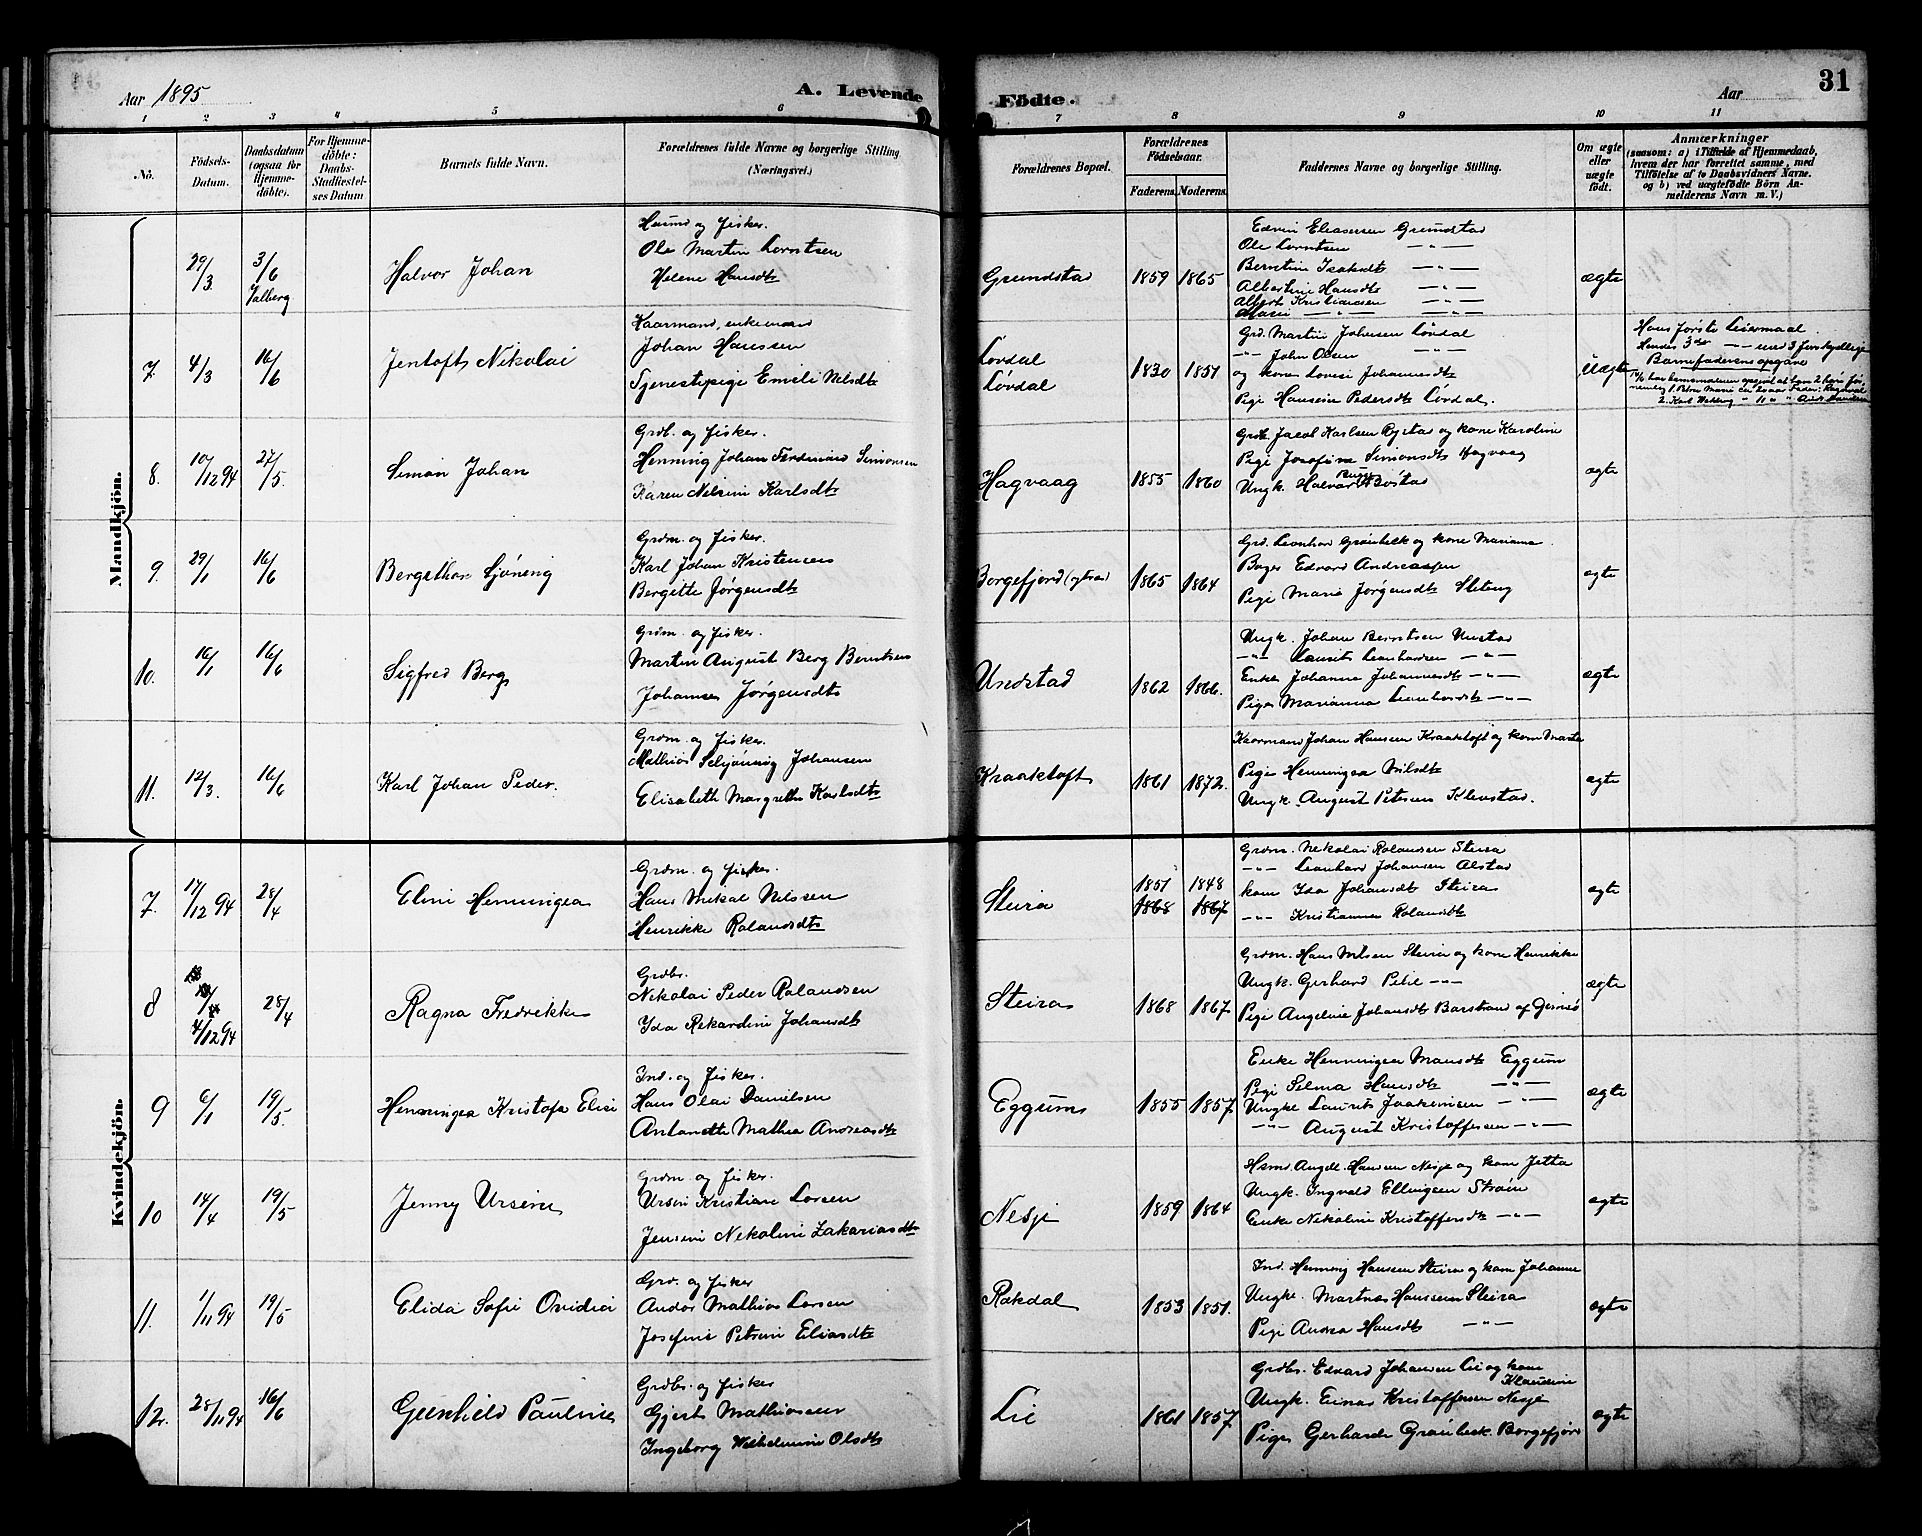 Aar 1895
A. Levende
Födte.
Aar
31
1 2 3 4 5 6 7 8 9 10 11
No.
Födsels-Datum.
Daabsdatum (ogsaa for Hjemme-döbte).
For Hjemme-döbte: Daabs-Stadfæstel-ses Datum
Barnets fulde Navn.
Forældrenes fulde Navne og borgerlige Stilling (Næringsvei.)
Forældrenes Bopæl.
Forældrenes Födselsaar.
Faderens. Moderens.
Faddernes Navne og borgerlige Stilling.
Om ægte eller uægte födt.
Anmærkninger
(saasom: a) i Tilfælde af Hjemmedaab, hvem der har forrettet samme, med Tilföielse af to Daabsvidners Navne. og b) ved uægtefödte Börn An-melderens Navn m. V.)
Mandkjön.
29/3 3/6 Valberg
Halvor Johan
Husmd og fisker.
Ole Martin Lorntsen
Helene Hansdtr
Grundstad 1859 1865
Edvin Eleasersen Grundstad
Ole Lorntsen —"—
Berntine Isaksdtr —"—
Albertine Hansdtr —"—
Albert Kristiansen —"—
ægte
7. 4/3 16/6
Jentoft Nikolai
Kaarmand, enkemand
Johan Hanssen
Tjenestepige Emelie Nilsdtr
Lövdal
Lövdal
1830 1851
Grd. Martin Johnsen Lövdal
—"— John Olsen —"—
og kone Lovise Johannesdtr
Pige Hansine Pedersdtr Lövdal.
Uægte
Hans første Leiermaal
Hendes 3die —"— med 3 forskjellige
Barnefaderens opgave
8. 10/12 94 27/5.
Simon Johan
Grdb. og fisker.
Henning Johan Ferdinand Simonsen
Karen Nilsine Karlsdtr
Hagvaag 1855 1860
Grdb. Jacob Karlsen Rystad og kone Karoline
Pige Josefine Simonsdtr Hagvaag
ægte
9. 29/1 16/6
Bergithon Sjöneng
Grdm. og fisker.
Karl Johan Kristensen
Bergitte Jørgensdtr
Borgefjord 1865 1864
Grd. Leonhard Grönbeck og kone Mariane
Bager Edvard Andreassen
Pige Marie Jørgensdtr
ægte
10. 16/1 16/6
Sigfred Berg
Grdm. og fisker.
Martin August Berg Berntsen
Johanna Jørgensdtr
Undstad 1862 1866.
Ungk. Johan Berntsen Unstad
—"— Laurits Leonhardsen —"—
Enke Johanna Johannesdtr —"—
Pige Marianna Leonhardsdtr —"—
ægte
11. 12/3. 16/6
Karl Johan Peder.
Grdm. og fisker.
Mathias Schjønning Johansen
Elisabeth Margrethe Karlsdtr
Kraaktoft 1861 1872.
Kaarmand Johan Hansen Kraaktoft og kone Marta
Pige Henningea Nilsdtr
Ungk. August Petersen Klevstad.
ægte
Kvindekjön.
7. 17/12 94 28/4
Eline Henningea
Grdm. og fisker.
Hans Mikal Nilssen
Henrikke Rolandsdtr
Steira 1851 1848
1868 1867
Grdm. Nikolai Rolandsen Steira
—"— Leonhard Johansen Alstad
kone Ida Johansdtr Steira
—"— Kristianna Rolandsdtr
ægte
8 4/12 94 28/4
Ragna Fredrikke
Grdbr.
Nikolai Peder Rolandsen
Ida Rikardine Johansdtr
Steira 1868 1867
Grdm. Hans Nilsen Steira og kone Henrikke
Ungk. Gerhard —"—
Pige Angelvie Johansdtr Barstrand af Gimsö
ægte
9 6/1 19/5.
Henningea Kristofa Elise
Ind. og fisker.
Hans Olai Danielsen
Antonette Mathea Andreasdtr
Eggum 1855 1857
Enke Henningea Mansdtr Eggum
Pige Selma Hansdtr —"—
Ungk. Laurits Joakimsen —"—
—"— August Kristoffersen —"—
ægte
10 14/4 19/5
Jenny Ursine
Grdm og fisker.
Ursin Kristian Larsen
Jensine Nikoline Zakariasdtr
Nesje 1859 1864
Hsmd. Angel. Hansen Nesje og kone Jetta
Ungk. Ingvald Ellingsen Strøm
Enke Nikoline Kristoffersdtr —"—
ægte
11. 1/11 94 19/5
Elida Sofie Ovidia
Grd. og fisker
Andor Mathias Larsen
Josefine Petrine Eliasdtr
Rækdal 1853 1851.
Ind. Henning Hanssen Steira og kone Johanna
Ungk. Martnas Hanssen Steira
Pige Andrea Hansdtr —"—
ægte
12. 28/11 94 16/6
Gunhild Pauline
Grdbr. og fisker
Gjert Mathiassen
Ingeborg Wilhelmine Olsdtr
Lie 1861 1857.
Grdbr. Edvard Johansen Lie og kone Klausine
Ungk. Einar Kristoffersen Nesje
Pige Gerharde Grønbeck Borgefjord
ægte